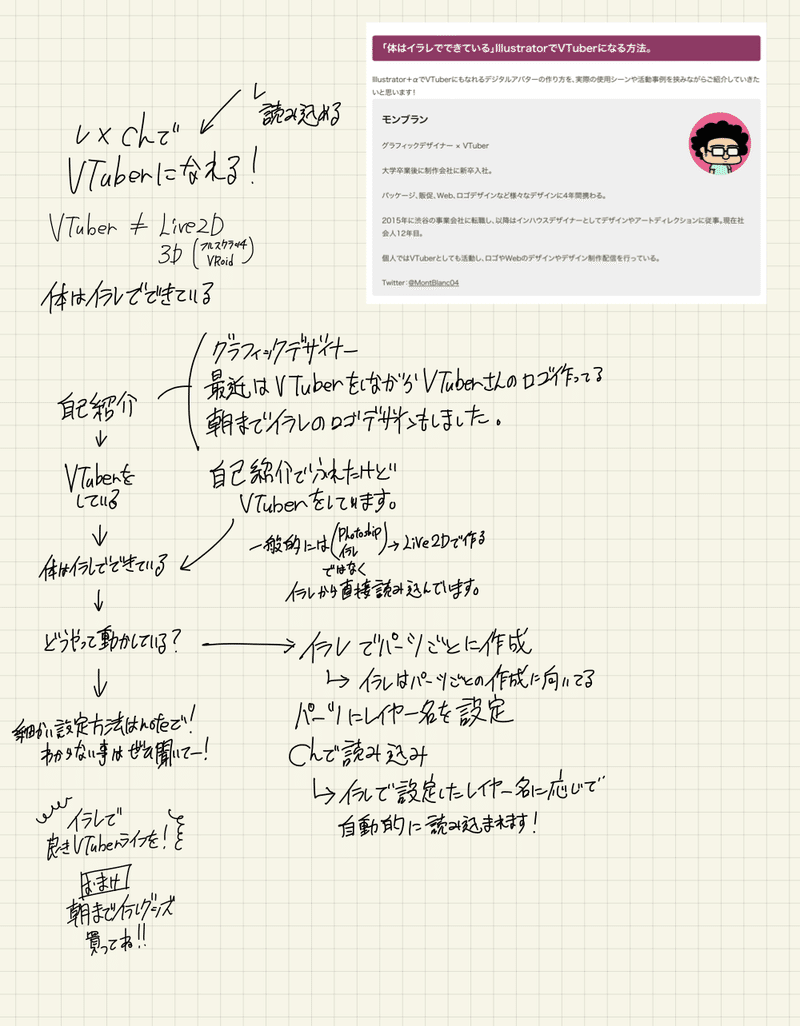 「体はイラレでできている」IllustratorでVTuberになる方法。
Illustrator+αでVTuberにもなれるデジタルアバターの作り方を、実際の使用シーンや活動事例を挟みながらご紹介していきた
いと思います！
モンブラン
グラフィックデザイナー × VTuber
大学卒業後に制作会社に新卒入社。
パッケージ、販促、Web、ロゴデザインなど様々なデザインに4年間携わる。
2015年に渋谷の事業会社に転職し、以降はインハウスデザイナーとしてデザインやアートディレクションに従事。現在社
会人12年目。
個人ではVTuberとしても活動し、ロゴやWebのデザインやデザイン制作配信を行っている。
Twitter：@MontBlanc04
レ
読み込める
レ×Chで
VTuberになれる！
VTuber ≠ Live2D
3D（フルスクラッチ
VRoid）
体はイラレでできている
自己紹介
グラフィックデザイナー
最近はVTuberをしながらVTuberさんのロゴ作ってる
朝までイラレのロゴデザインもしました。
↓
VTuberを
している
自己紹介でふれたけど
VTuberをしています。
↓
一般的には（Photoship
イラレ）→Live2Dで作る
ではなく
イラレから直接読み込んでいます。
体はイラレでできている
↓
どうやって動かしている？
→ イラレでパーツごとに作成
↳ イラレはパーツごとの作成に向いてる
パーツにレイヤー名を設定
Chで読み込み
↳ イラレで設定したレイヤー名に応じて
自動的に読み込まれます！
↓
細かい設定方法はnoteで！
わからない事はぜひ聞いてー！
イラレで
良きVTuberライフを！
おまけ
朝までイラレグッズ
買ってね!!